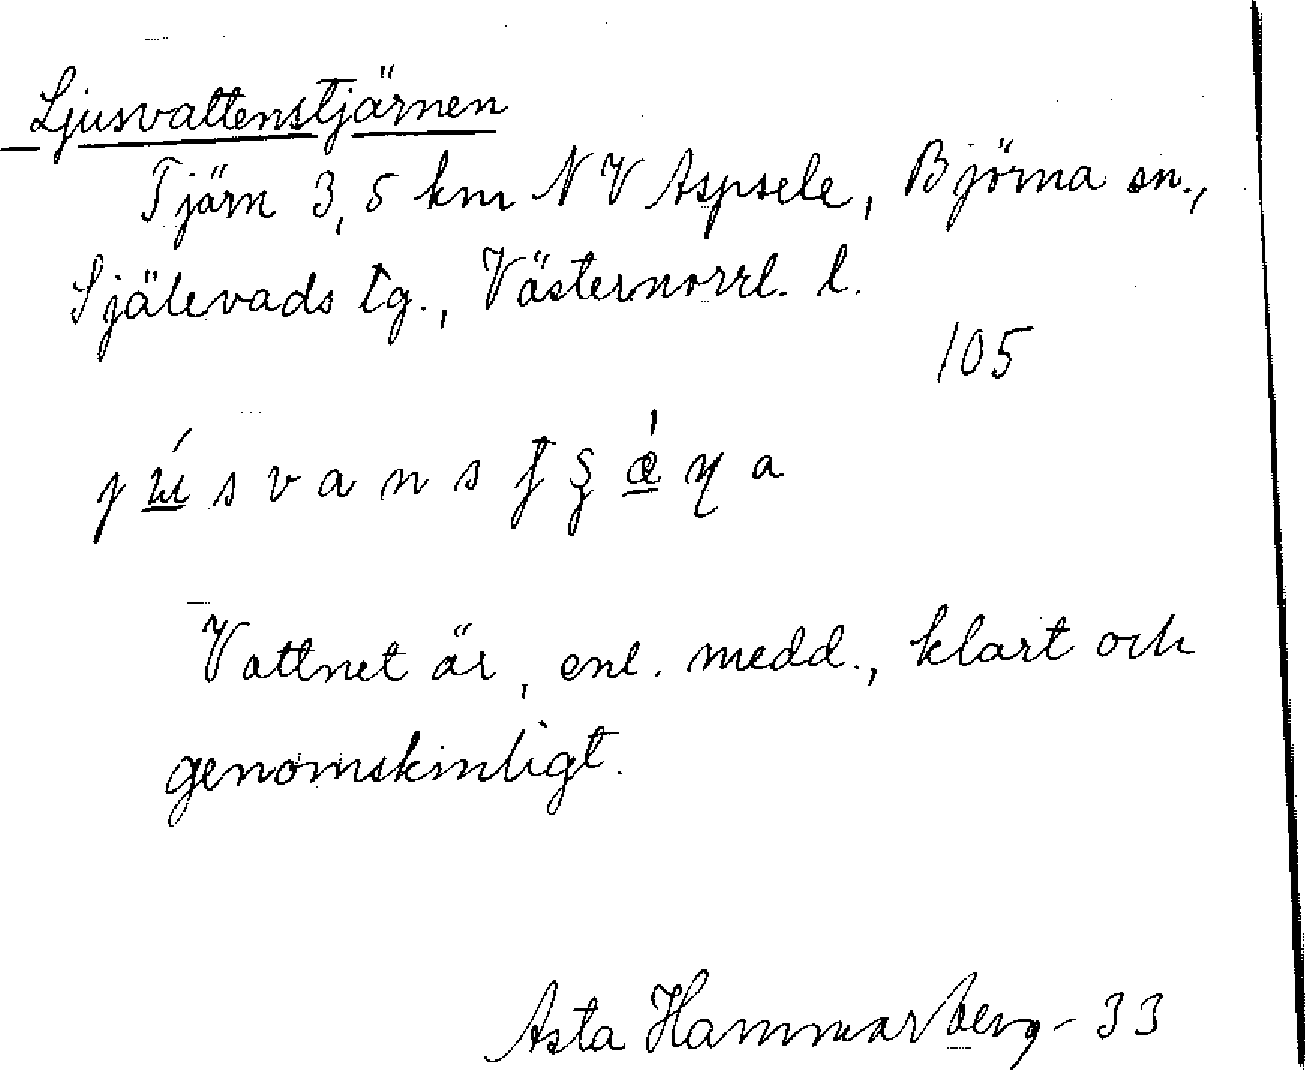 Ljusvattenstjärnen
Tjärn 3,5 km NV Aspsele, Björna sn.,
Själevads tg., Västernorrl. l.
105
Vattnet är, enl. medd., klart och
genomskinligt.
Asta Hammarberg - 33